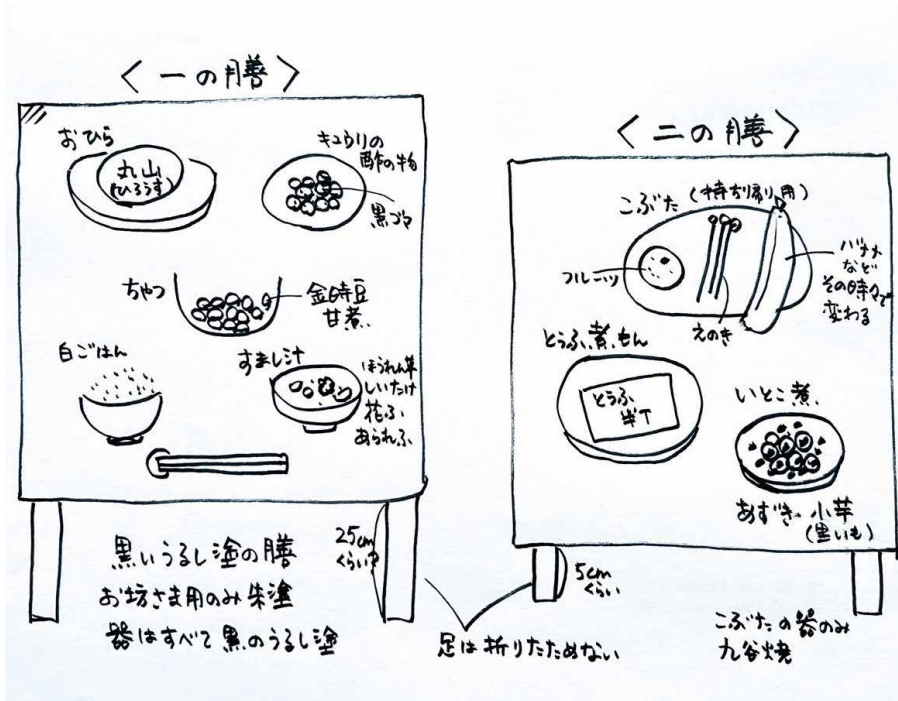 〈一の膳〉
おひら
丸山
(ひろうす)
キュウリの
酢の物
黒ゴマ
ちゃつ
金時豆
甘煮
白ごはん
すまし汁
ほうれん草
しいたけ
花ふ
あられふ
黒いうるし塗の膳
お坊さま用のみ朱塗
器はすべて黒のうるし塗
25cm
くらい?
足は折りたためない
〈二の膳〉
こぶた(持ち帰り用)
フルーツ
えのき
バナナ
など
その時々で
変わる
とうふ煮もん
とうふ
半丁
いとこ煮
あずき・小芋
(黒いも)
5cm
くらい
こぶたの器のみ
九谷焼